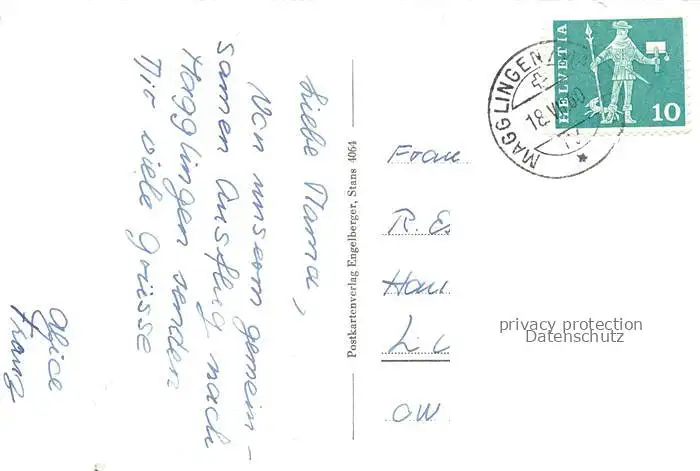 Liebe Mama,
Von unserm gemein-
samen Ausflug nach
Magglingen senden
Dir viele Grüsse
Alice
Franz
Postkartenverlag Engelberger, Stans 4064
HELVETIA
10
MAGGLINGEN
18.VI.60
Frau
R. E.
Hau
OW
privacy protection
Datenschutz